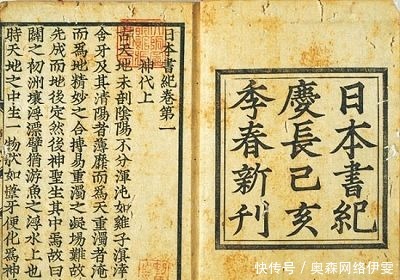 日本書紀
慶長己亥
季春新刊
日本書紀卷第一
神代上
古天地未剖陰陽不分渾沌如雞子溟涬
含牙及其清陽者薄靡而爲天重濁者淹
而爲地精妙之合搏易重濁之凝塲難故
先成而地後定然後神聖生其中焉故曰
闢之初洲壤浮漂譬猶游魚之浮水上也
時天地之中生一物狀如葦牙便化爲神
快传号/奥森网络伊雯